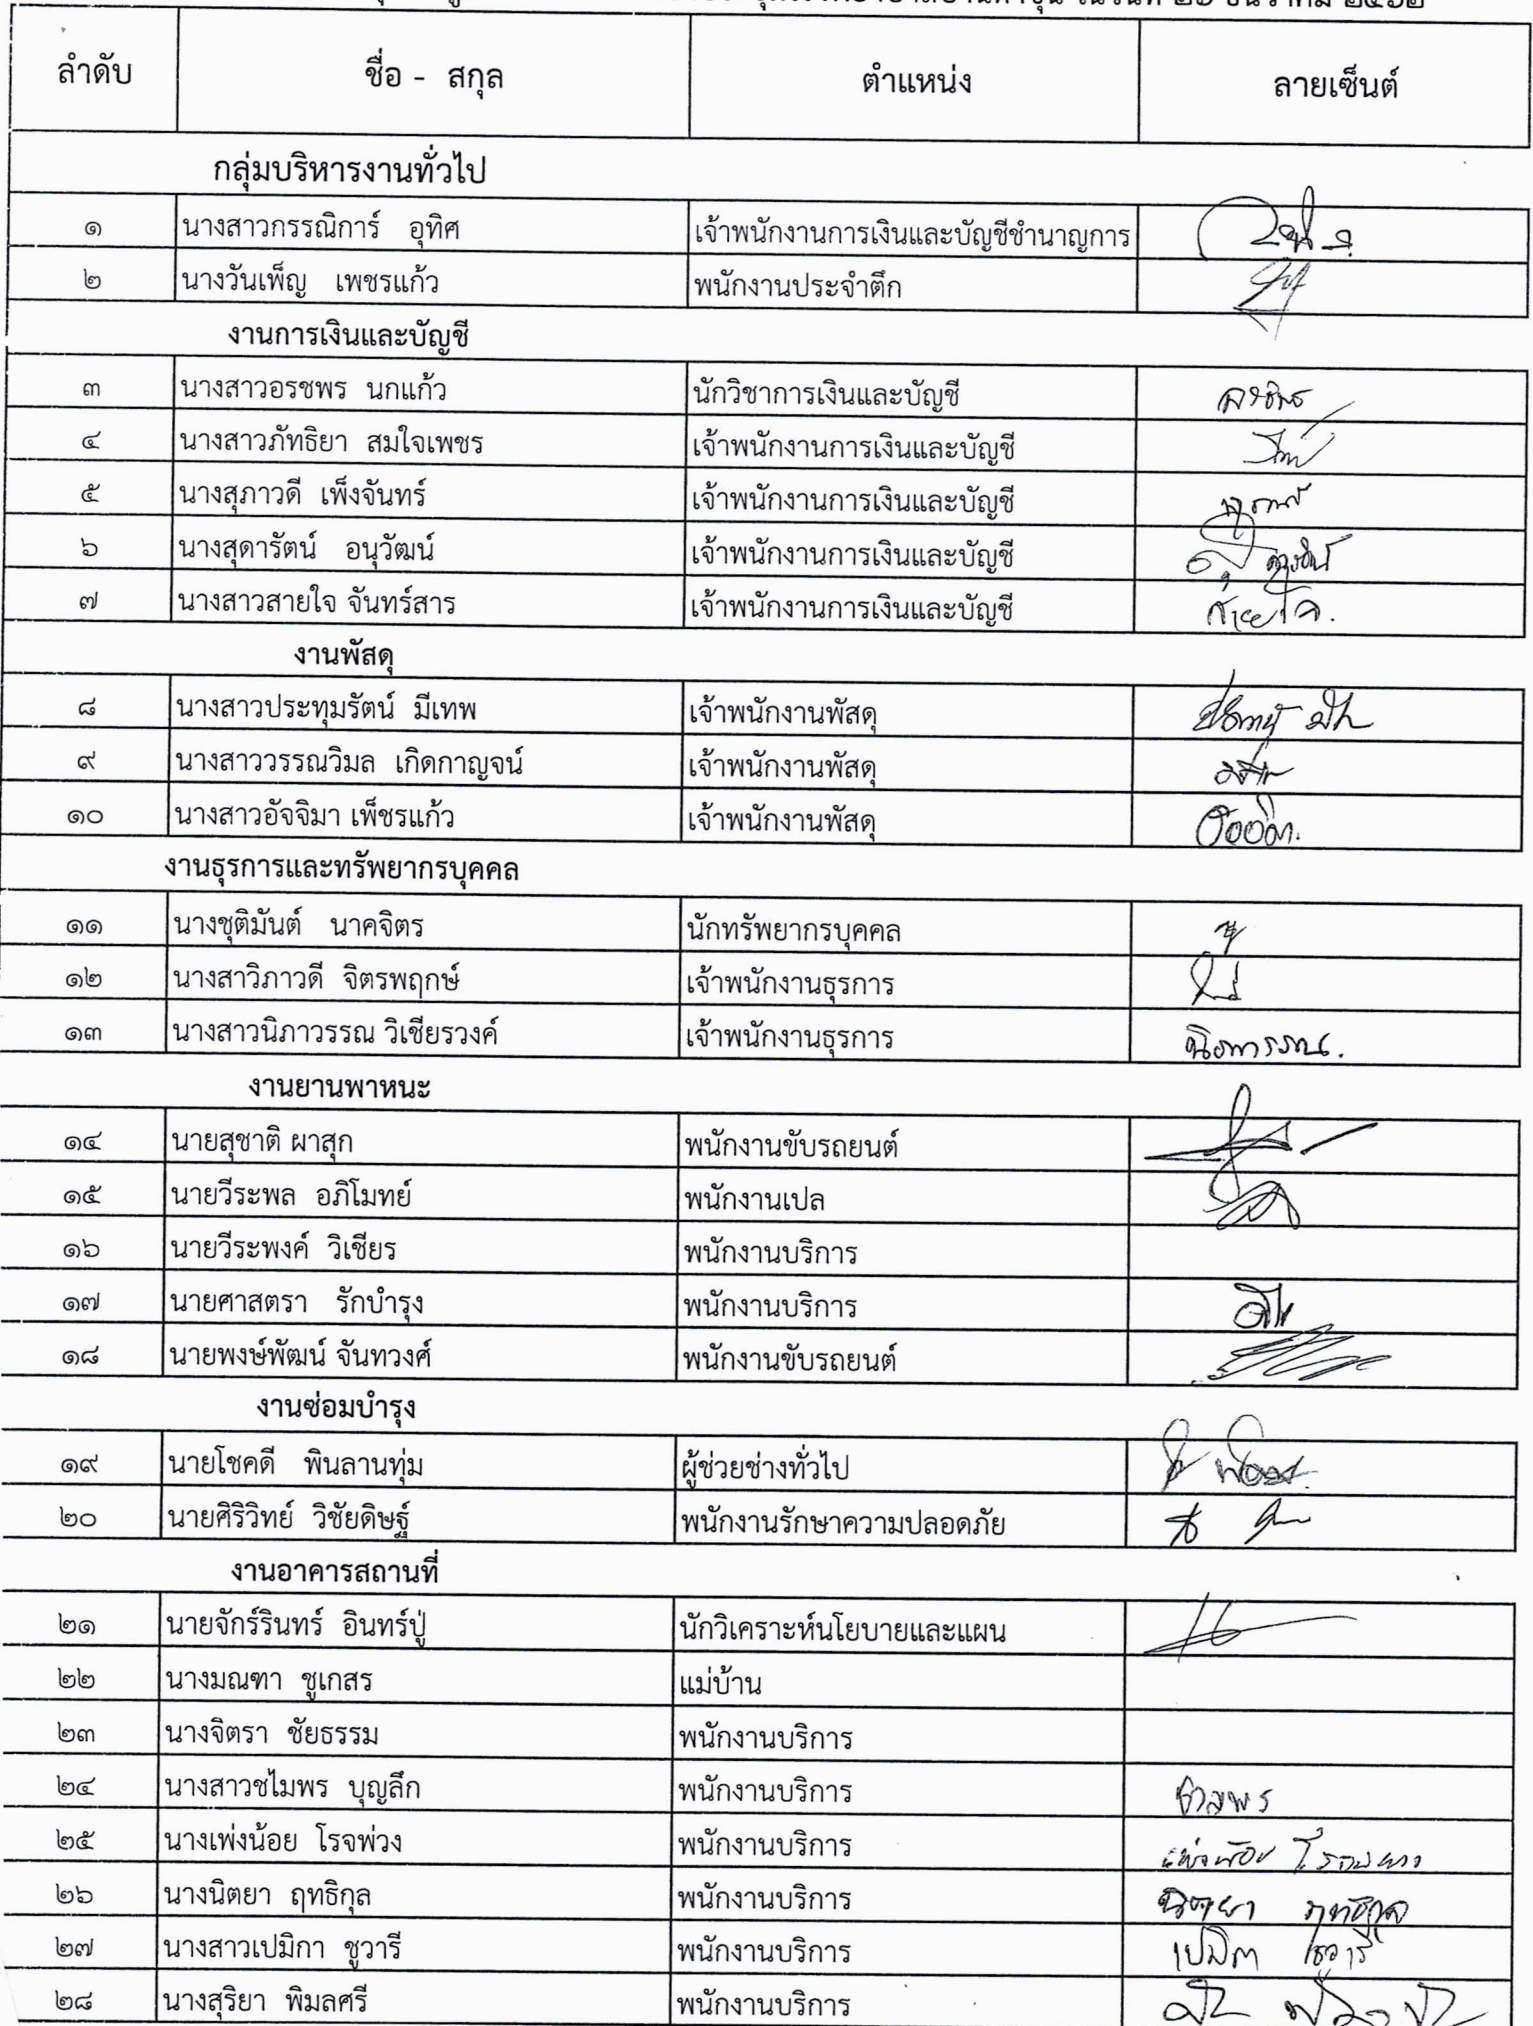 ลำดับ ชื่อ - สกุล ตำแหน่ง ลายเซ็นต์
กลุ่มบริหารงานทั่วไป
๑ นางสาวกรรณิการ์ อุทิศ เจ้าพนักงานการเงินและบัญชีชำนาญการ
๒ นางวันเพ็ญ เพชรแก้ว พนักงานประจำตึก
งานการเงินและบัญชี
๓ นางสาวอรชพร นกแก้ว นักวิชาการเงินและบัญชี
๔ นางสาวภัทธิยา สมใจเพชร เจ้าพนักงานการเงินและบัญชี
๕ นางสุภาวดี เพ็งจันทร์ เจ้าพนักงานการเงินและบัญชี
๖ นางสุดารัตน์ อนุวัฒน์ เจ้าพนักงานการเงินและบัญชี
๗ นางสาวสายใจ จันทร์สาร เจ้าพนักงานการเงินและบัญชี สายใจ.
งานพัสดุ
๘ นางสาวประทุมรัตน์ มีเทพ เจ้าพนักงานพัสดุ
๙ นางสาววรรณวิมล เกิดกาญจน์ เจ้าพนักงานพัสดุ
๑๐ นางสาวอัจจิมา เพ็ชรแก้ว เจ้าพนักงานพัสดุ
งานธุรการและทรัพยากรบุคคล
๑๑ นางชุติมันต์ นาคจิตร นักทรัพยากรบุคคล
๑๒ นางสาวิภาวดี จิตรพฤกษ์ เจ้าพนักงานธุรการ
๑๓ นางสาวนิภาวรรณ วิเชียรวงค์ เจ้าพนักงานธุรการ นิภาวรรณ.
งานยานพาหนะ
๑๔ นายสุชาติ ผาสุก พนักงานขับรถยนต์
๑๕ นายวีระพล อภิโมทย์ พนักงานเปล
๑๖ นายวีระพงค์ วิเชียร พนักงานบริการ
๑๗ นายศาสตรา รักบำรุง พนักงานบริการ
๑๘ นายพงษ์พัฒน์ จันทวงศ์ พนักงานขับรถยนต์
งานซ่อมบำรุง
๑๙ นายโชคดี พินลานทุ่ม ผู้ช่วยช่างทั่วไป
๒๐ นายศิริวิทย์ วิชัยดิษฐ์ พนักงานรักษาความปลอดภัย
งานอาคารสถานที่
๒๑ นายจักร์รินทร์ อินทร์ปู่ นักวิเคราะห์นโยบายและแผน
๒๒ นางมณฑา ชูเกสร แม่บ้าน
๒๓ นางจิตรา ชัยธรรม พนักงานบริการ
๒๔ นางสาวชไมพร บุญลึก พนักงานบริการ
๒๕ นางเพ่งน้อย โรจพ่วง พนักงานบริการ
๒๖ นางนิตยา ฤทธิกุล พนักงานบริการ นิตยา ฤทธิกุล
๒๗ นางสาวเปมิกา ชูวารี พนักงานบริการ เปมิกา ชูวารี
๒๘ นางสุริยา พิมลศรี พนักงานบริการ